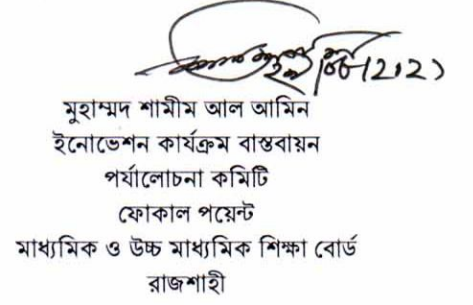 মুহাম্মদ শামীম আল আমিন
ইনোভেশন কার্যক্রম বাস্তবায়ন
পর্যালোচনা কমিটি
ফোকাল পয়েন্ট
মাধ্যমিক ও উচ্চ মাধ্যমিক শিক্ষা বোর্ড
রাজশাহী